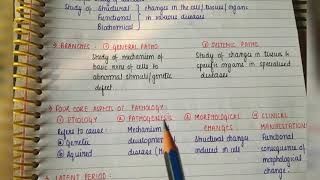 Study of disease
Study of Structural } changes in the cell/tissue/organs
Functional } in various diseases
Biochemical
→ BRANCHES : ① GENERAL PATHO ② SYSTEMIC PATHO
Study of mechanism of Study of changes in tissues &
basic rxns of cells to specific organs in specialised
abnormal stimuli/genetic diseases
defect....
→ FOUR CORE ASPECTS OF PATHOLOGY :
① ETIOLOGY ② PATHOGENESIS ③ MORPHOLOGICAL ④ CLINICAL
Refers to cause : Mechanism CHANGES MANIFESTATIONS
ⓐ Genetic development Structural changes Functional
ⓑ Aquired disease induced in cell consequence of
morphological
change.
→ LATENT PERIOD :